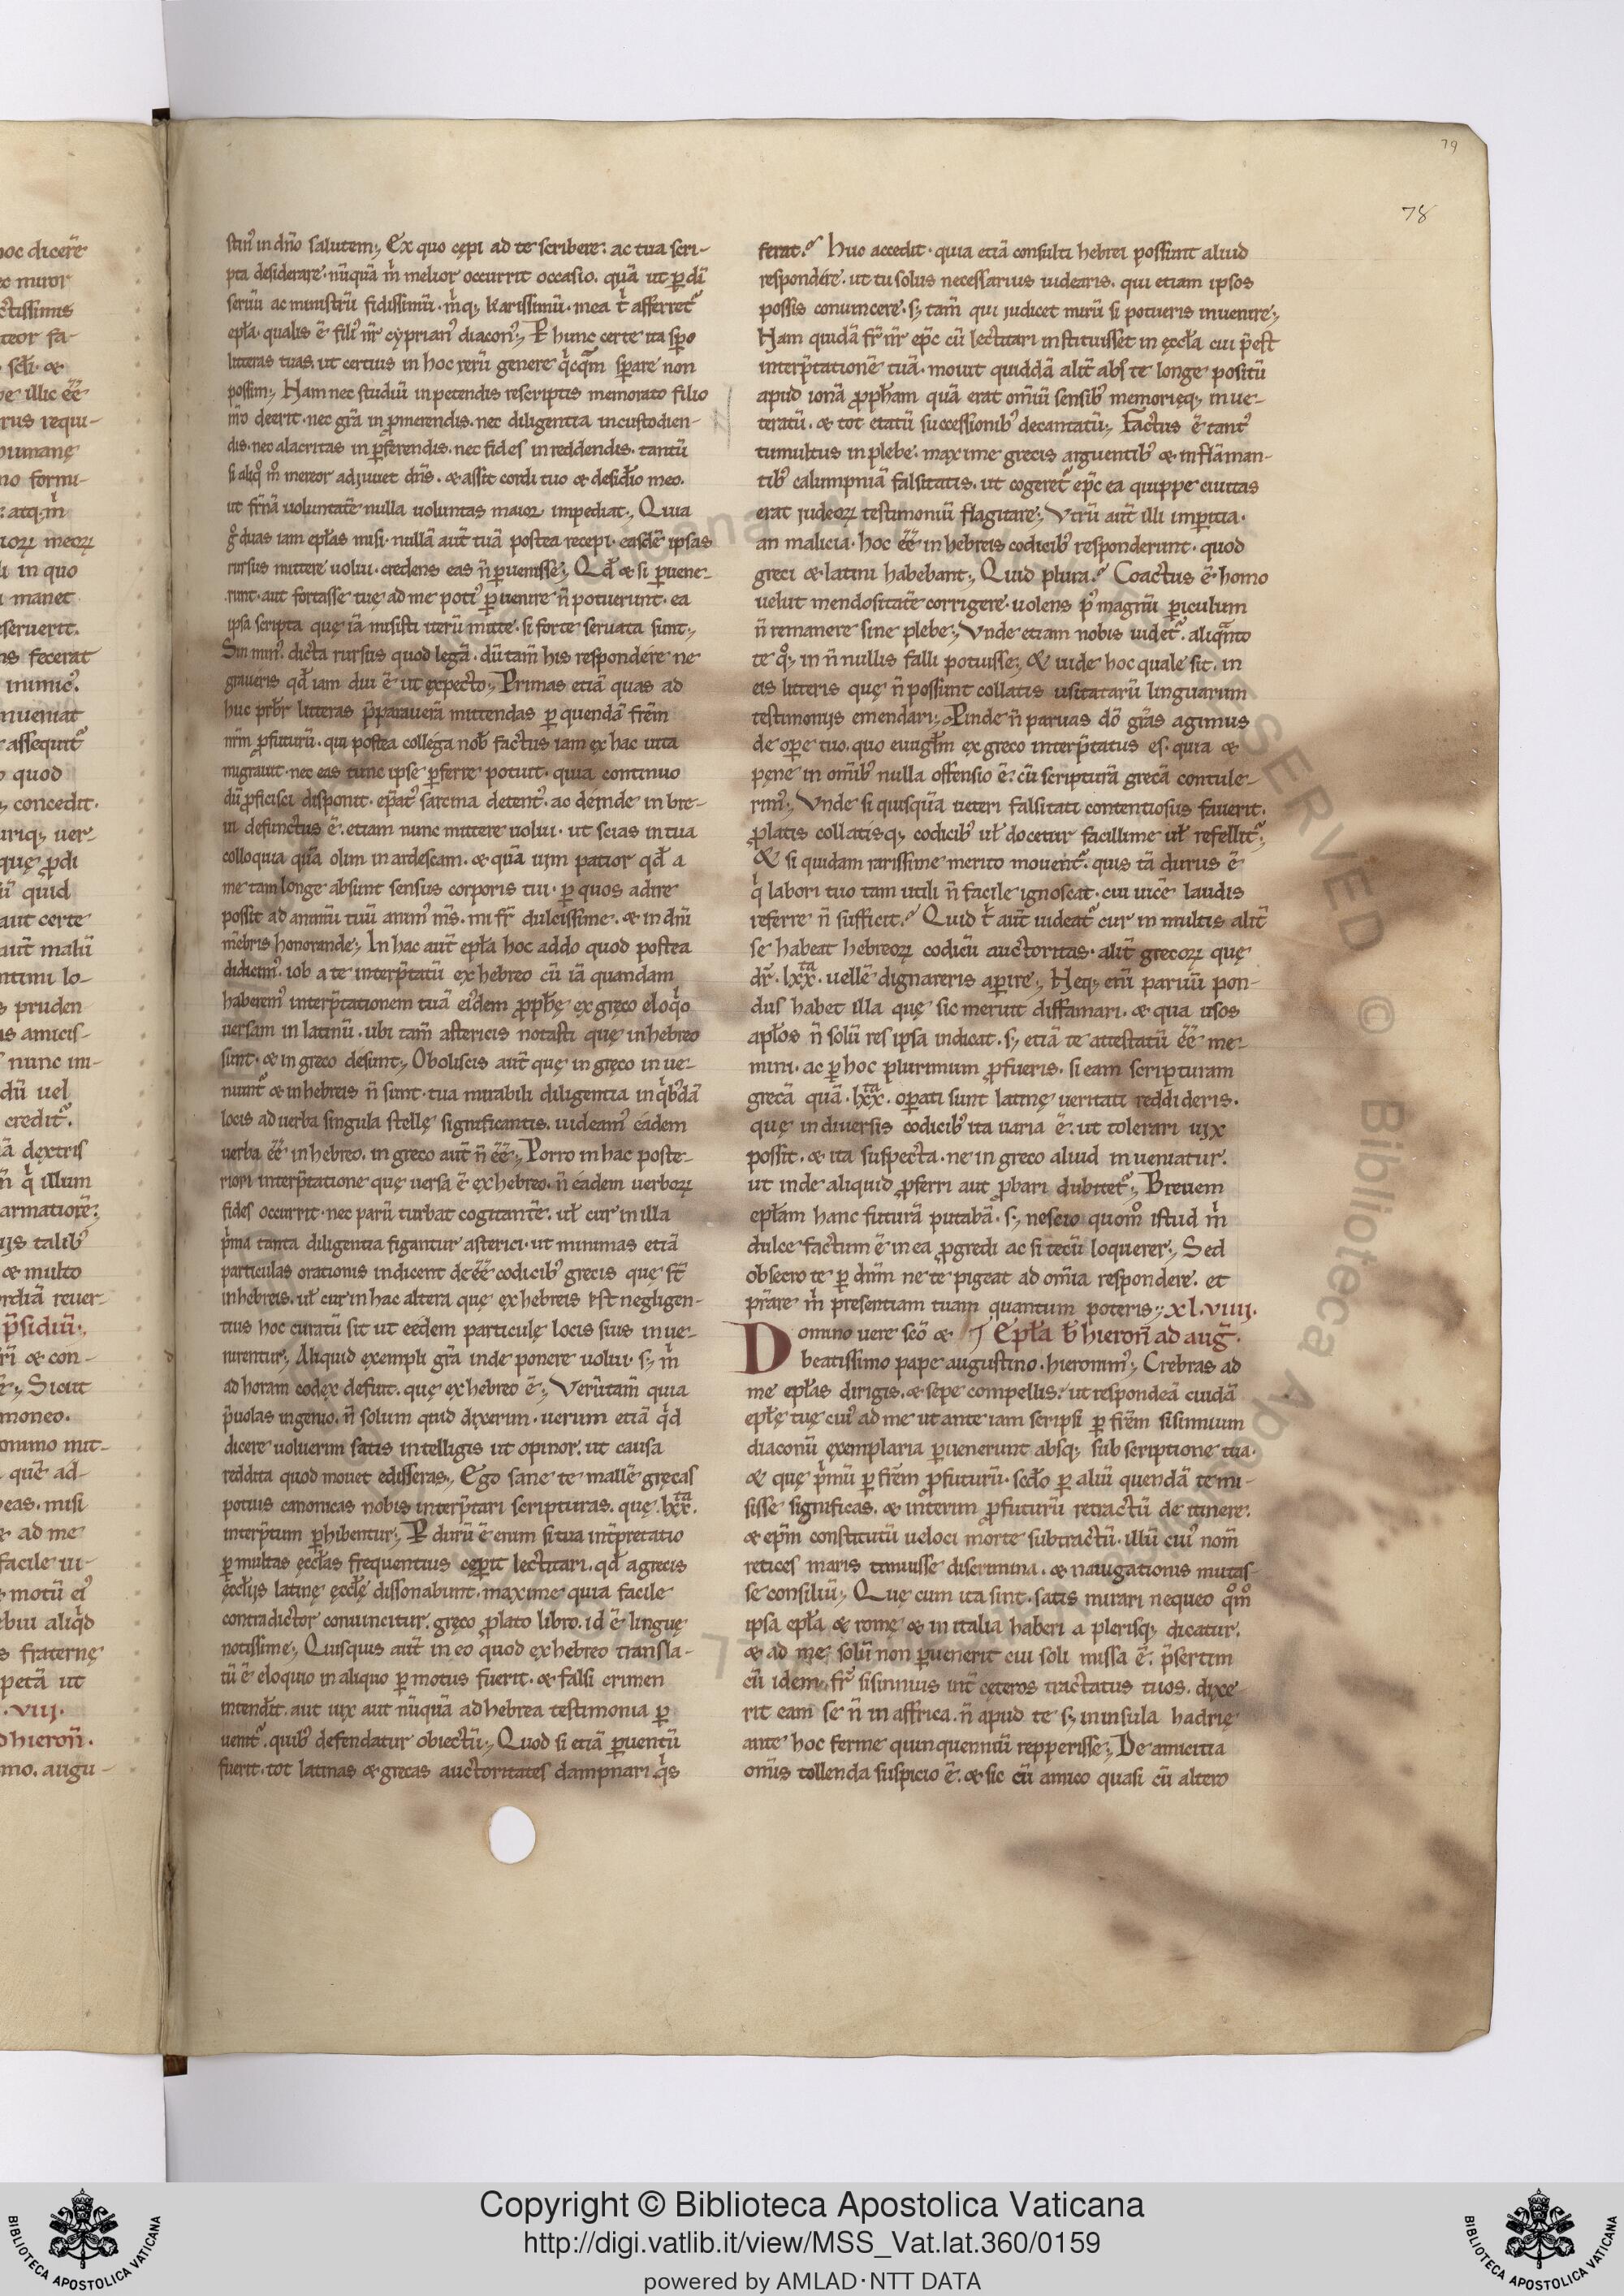 79
78
stin᷒ in dño salutem; Ex quo cępi ad te scribere: ac tua scri-
pta desiderare· nūquā m̓ melior occurrit occasio, quā ut ꝑ dī
seruū ac ministrū fidissimū· m̓q; karissimū· mea t̓ afferret᷒
epła· qualis ē fili᷒ nr̄ cyprian᷒ diacon᷒; P hunc certe ita spo
litteras tuas, ut certius in hoc rerū genere q̓cq̄m sperare non
possim; Nam nec studiū in petendis rescriptis memorato filio
nr̄o deerit· nec gr̄a in ꝓmerendis· nec diligentia in custodien-
dis· nec alacritas in ꝑferendis· nec fides in reddendis· tantū
si aliq̊ m̊ mereor adjuuet dñs· & assit cordi tuo & desiđio meo·
ut fr̄nā uoluntatē nulla uoluntas maior impediat; Quia
g̊ duas iam epłas misi· nullā aut̄ tuā postea recepi· easdē ipsas
rursus mittere uolui· credens eas ñ ꝑuenisse; Qđ & si ꝑuene-
runt· aut fortasse tuę ad me poti᷒ ꝑuenire ñ potuerunt· ea
ipsa scripta quę iā misisti iterū mitte· si forte seruata sunt;
Sin min᷒ dicta rursus quod legā· dū tam̄ his respondere ne
graueris qđ iam diu ē ut expecto; Primas etiā quas ad
huc prb̄r litteras p̄paraueram mittendas ꝑ quendā frēm
nr̄m ꝓfuturū· qui postea collega nob̄ factus iam ex hac uita
migrauit· nec eas tunc ipse ꝑferre potuit· quia continuo
dū ꝓficisci disponit· ep̄at᷒ sarcina detent᷒· ac deinde in bre-
ui defunctus ē· etiam nunc mittere uolui· ut scias in tua
colloquia quā olim in ardescam· & quā uim patior qđ a
me tam longe absunt sensus corporis tui· ꝑ quos adire
possit ad animū tuū anim᷒ m̄s· mi fr̄ dulcissime· & in dñi
mēbris honorande; In hac aut̄ epła hoc addo quod postea
didicim᷒· iob a te interp̄tatū ex hebreo cū iā quandam
haberem᷒ interp̄tationem tuā ei᷒dem ꝓph̄ę ex gręco eloq̓o
uersam in latinū· ubi tam̄ astericis notasti quę in hebreo
sunt· & in greco desunt; Oboliscis aut̄ quę in gręco inue-
niunt᷒ & in hebreis ñ sunt· tua mirabili diligentia in q̓b᷒dā
locis ad uerba singula stellę significantis· uideam᷒ eadem
uerba ēē in hebreo· in greco aut̄ ñ ēē; Porro in hac poste-
riori interp̄tatione quę uersa ē ex hebreo· ñ eadem uerboꝝ
fides occurrit· nec parū turbat cogitantē· uł cur in illa
p̓ma tanta diligentia figantur asterici· ut minimas etiā
particulas orationis indicent deēē codicib᷒ grecis quę st̄
in hebreis· uł cur in hac altera quę ex hebreis ē st negligen-
tius hoc curatū sit ut eędem particulę locis suis inue-
nirentur; Aliquid exempli gr̄a inde ponere uolui· s; m̓
ad horam codex defuit· quę ex hebreo ē; Verūtam̄ quia
p̄uolas ingenio· ñ solum quid dixerim· uerum etiā q̓d
dicere uoluerim satis intelligis ut opinor· ut causa
reddita quod mouet edisseras; Ego sane te mallē gręcas
potius canonicas nobis interp̄tari scripturas· quę lxx̄ᵗᵃ·
interp̄tum ꝑhibentur; P durū ē enim si tua int̄pretatio
ꝑ multas ęcclas frequentius cęperit lectitari· qđ a grecis
ęcclijs latinę ęcclę dissonabunt· maxime quia facile
contradictor conuincitur· gręco ꝓlato libro· id ē linguę
notissimę; Quisquis aut̄ in eo quod ex hebreo transla-
tū ē eloquio in aliquo ꝑmotus fuerit· & falsi crimen
intenđit· aut uix aut nūquā ad hebrea testimonia ꝑ
uenit᷒· quib᷒ defendatur obiectū; Quod si etiā ꝑuentū
fuerit· tot latinas & grecas auctoritates dampnari q̓s
ferat? Huc accedit· quia etiā consulti hebrei possunt aliud
respondere· ut tu solus necessarius uidearis· qui etiam ipsos
possis conuincere· s; tam̄ qui judicet mirū si potueris inuenire;
Nam quidā fr̄ nr̄ ep̄c cū lectitari instituisset in ęccła cui p̄est
interp̄tationē tuā· mouit quiddā alit̄ abs te longe positū
apud ionā ꝓpham quā erat om̄iū sensib᷒ memorięq; inue-
teratū· & tot etatū successionib᷒ decantatū; Factus ē tant᷒
tumultus in plebe· maxime grecis arguentib᷒ & inflāman-
tib᷒ calumpniā falsitatis· ut cogeret᷒ ep̄c ea quippe ciuitas
erat judeoꝝ testimoniū flagitare; Vtrū aut̄ illi imꝑitia·
an malicia· hoc ēē in hebreis codicib᷒ responderunt· quod
greci & latini habebant; Quid plura? Coactus ē homo
uelut mendositatē corrigere· uolens p᷒ magnū ꝑiculum
ñ remanere sine plebe; Vnde etiam nobis uidet᷒· aliq̄nto
te q̊; in ñ nullis falli potuisse; & uide hoc quale sit· in
eis litteris quę ñ possunt collatis usitatarū linguarum
testimonijs emendari; Pinde ñ paruas dō grās agimus
de opere tuo· quo euūgłm ex greco interp̄tatus es· quia &
pęne in om̄ib᷒ nulla offensio ē· cū scripturā grecā contule-
rim᷒; Vnde si quisquā ueteri falsitati contentiosus fauerit·
ꝓlatis collatisq; codicib᷒ uł docetur facillime uł refellit᷒;
& si quidam rarissime merito mouent᷒· quis tā durus ē
q̓ labori tuo tam utili ñ facile ignoscat· cui uicē laudis
referre ñ sufficit? Quid t̓ aut̄ uideat᷒ cur in multis alit̄
se habeat hebreoꝝ codicū auctoritas· alit̄ grecoꝝ quę
dr̄· lxx̄ᵗᵃ· uellē dignareris aperire; Neq; eni paruū pon-
dus habet illa quę sic meruit diffamari· & qua usos
apłos ñ solū res ipsa indicat· s; etiā te attestatū ēē me-
mini· ac ꝑ hoc plurimum ꝓfueris· si eam scripturam
grecā quā· lxx̄ᵗᵃ· operati sunt latinę ueritati reddideris·
quę in diuersis codicib᷒ ita uaria ē· ut tolerari uix
possit· & ita suspecta· ne in greco aliud inueniatur·
ut inde aliquid ꝓferri aut ꝓbari dubitet᷒; Breuem
epłam hanc futurā putabā· s; nescio quom̊ istud m̓
dulce factum ē in ea ꝓgredi ac si tecū loquerer; Sed
obsecro te ꝑ dn̄m ne te pigeat ad om̄ia respondere· et
pr̄are m̓ presentiam tuam quantum poteris; xl.viiij.
Domino uere scō & Epła b̄ hieron̄ ad aug̃·
beatissimo pape augustino· hieronim᷒; Crebras ad
me epłas dirigis· & sępe compellis· ut respondeā cuidā
epłę tuę cui᷒ ad me ut ante iam scripsi ꝑ frēm sisinnium
diaconū ęxemplaria ꝑuenerunt absq; subscriptione tua·
& quę p̓mū ꝑ frēm ꝓfuturū· scđo ꝑ aliū quendā te mi-
sisse significas· & interim ꝓfuturū retractū de itinere·
& ep̄m constitutū ueloci morte subtractū· illū cui᷒ nom̄
retices maris timuisse discrimina· & nauigationis mutas-
se consiliū; Quę cum ita sint· satis mirari nequeo q̊m̊
ipsa epła & romę & in italia haberi a plerisq; dicatur·
& ad me solū non ꝑuenerit cui soli missa ē· p̄sertim
cū idem fr̄ sisinnius int̄ cęteros tractatus tuos· dixe-
rit eam se ñ in affrica· ñ apud te s; in insula hadrię
ante hoc ferme quinquenniū repperisse; De amicitia
om̄is tollenda suspicio ē· & sic cū amico quasi cū altero
Copyright © Biblioteca Apostolica Vaticana
http://digi.vatlib.it/view/MSS_Vat.lat.360/0159
powered by AMLAD·NTT DATA
BIBLIOTECA APOSTOLICA VATICANA
BIBLIOTECA APOSTOLICA VATICANA